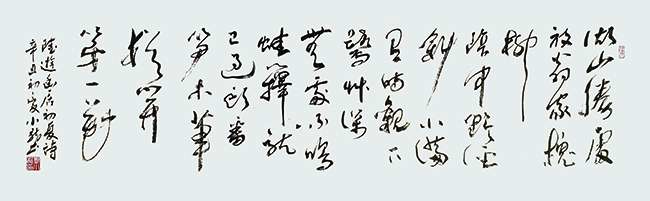 湖山勝處
放翁家槐
柳
陰中野徑
斜水滿
有時觀下
鷺草深
無處不鳴
蛙籜龍
已過頭番
筍木筆
猶開
第一花
陸遊幽居初夏詩
辛丑初夏小